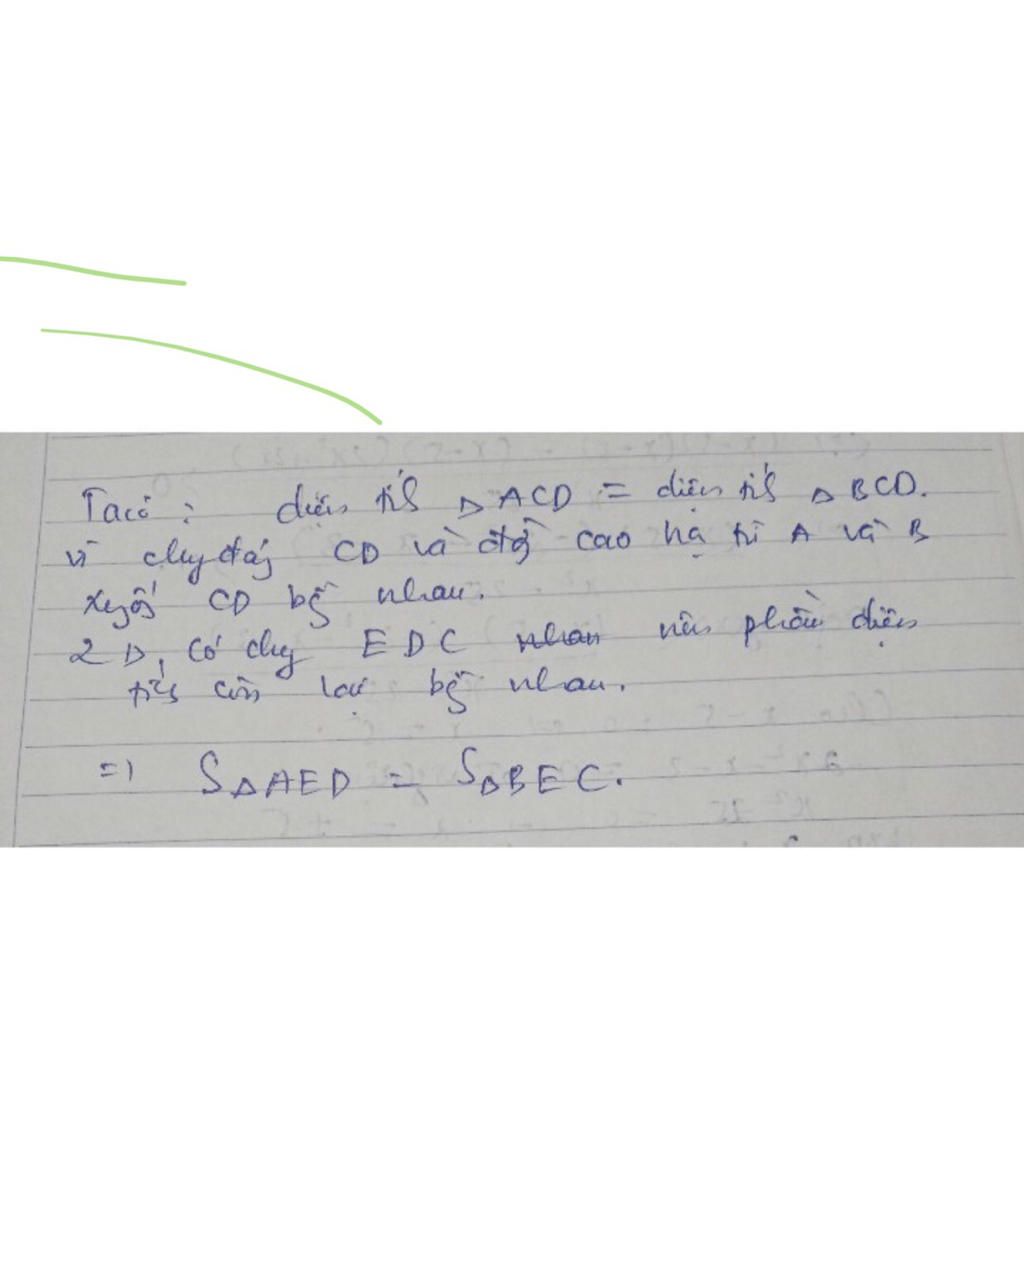 Ta có : diện tích Δ ACD = diện tích Δ BCD.
vì chung đáy CD và đường cao hạ từ A và B
xuống CD bằng nhau.
2 Δ, có chung EDC nhau nên phần diện
tích còn lại bằng nhau.
=> SΔAED = SΔBEC.